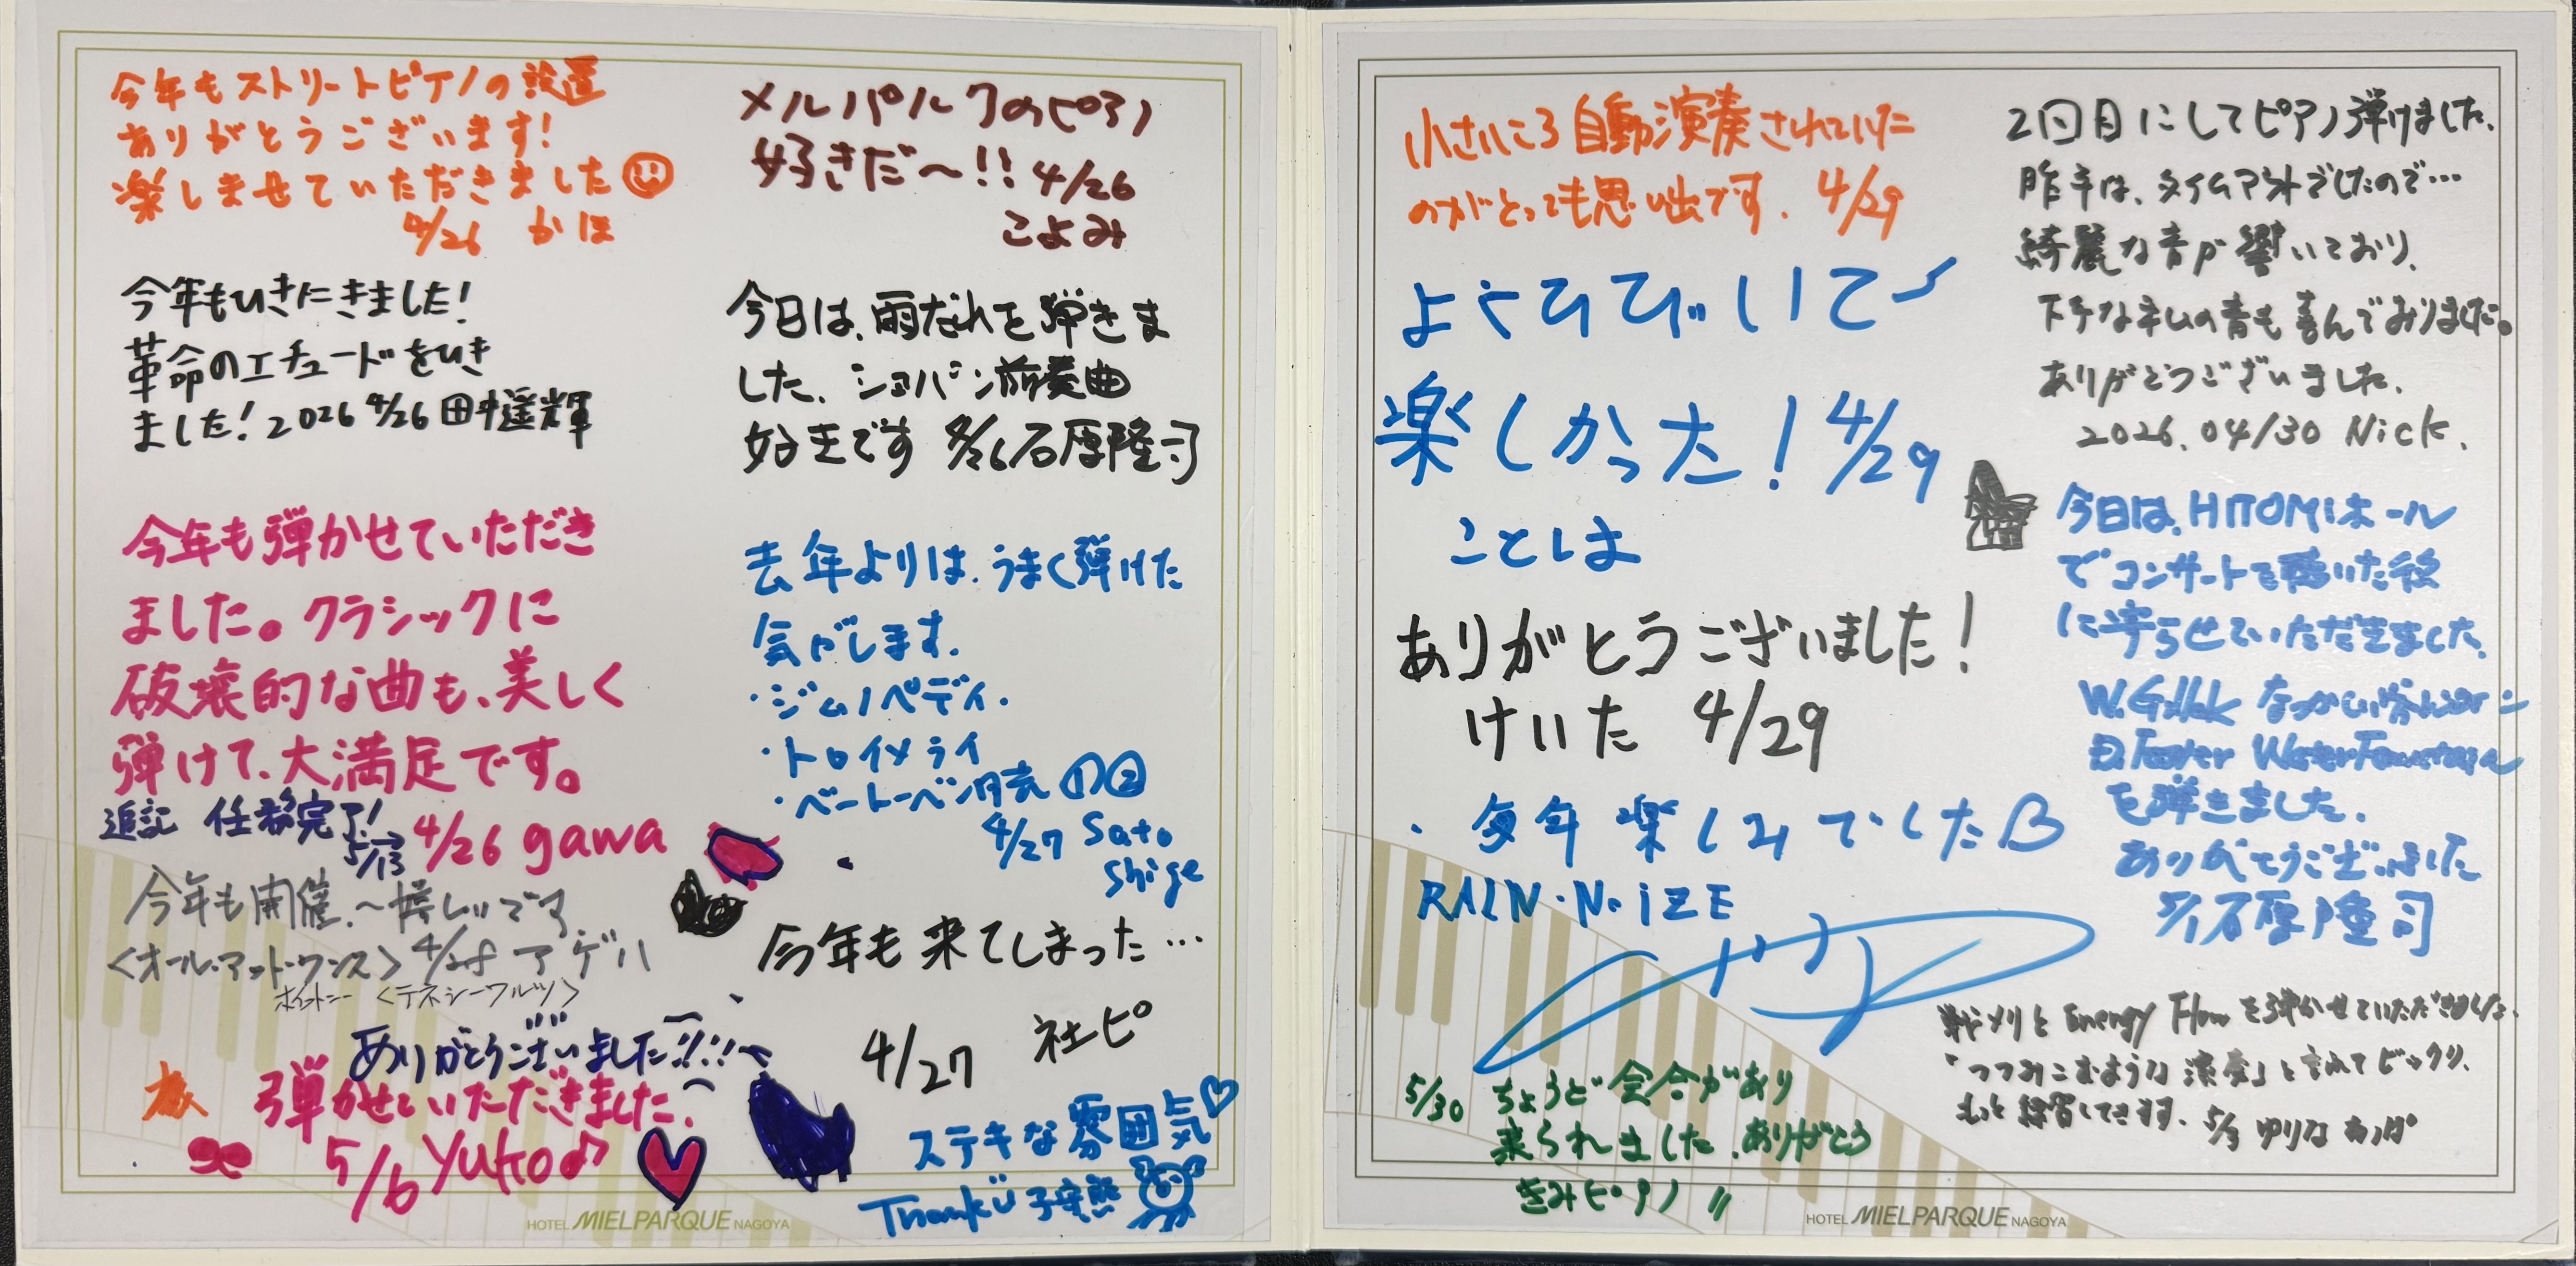 今年もストリートピアノの設置
ありがとうございます!
楽しませていただきました
4/26 かほ
今年もひきにきました!
革命のエチュードをひき
ました! 2026 4/26 田中遥輝
今年も弾かせていただき
ました。クラシックに
破壊的な曲も、美しく
弾けて、大満足です。
4/26 gawa
追記 任務完了!
5/13
今年も開催、〜嬉しいです
<オール・アット・ワンス> アゲハ
ホイットニー <テネシーワルツ>
ありがとうございました!!!!
弾かせていただきました.
5/6 Yuko♪
メルパルクのピアノ
好きだ〜!! 4/26
こよみ
今日は、雨だれを弾きま
した、ショパン前奏曲
好きです 石原隆司
去年よりは、うまく弾けた
気がします.
・ジムノペディ.
・トロイメライ
・ベートーベン月光 ①②
4/27 Sato
Shige
今年も来てしまった…
4/27 社ピ
ステキな雰囲気♡
ThankU 子安熊
HOTEL MIELPARQUE NAGOYA
小さいころ自動演奏されていた
のがとっても思い出です. 4/29
よくひびいて
楽しかった! 4/29
ことしま
ありがとうございました!
けいた 4/29
・毎年楽しみでした
RAIN・NoiZE
5/30 ちょうど会合があり
来られました.ありがとう
きみピアノ〃
2回目にしてピアノ弾けました.
昨年は、タイムアウトでしたので…
綺麗な音が響いており、
下手な私の音も喜んでおりました。
ありがとうございました.
2026.04/30 Nick.
今日は、HITOMIホール
でコンサートを聴いた後
に寄らせていただきました.
W.Gillock なつかしい
Water
を弾きました.
ありがとうございました
5/1石原隆司
戦メリと Energy Flow を弾かせていただきました.
「つつみこむような演奏」と言われてビックリ.
もっと練習してきます. 5/3 ゆりな
HOTEL MIELPARQUE NAGOYA